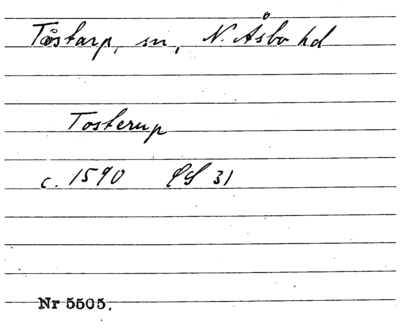 Tåstarp, sn, N. Åsbo hd
Tosterup
c. 1590 LS 31
Nr 5505.